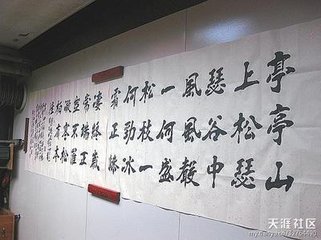 亭亭山
上松瑟
瑟谷中
風風聲
一何盛
松枝一
何勁冰
霜正慘
凄終歲
常端正
豈不罹
凝寒松
柏有本
天涯社区